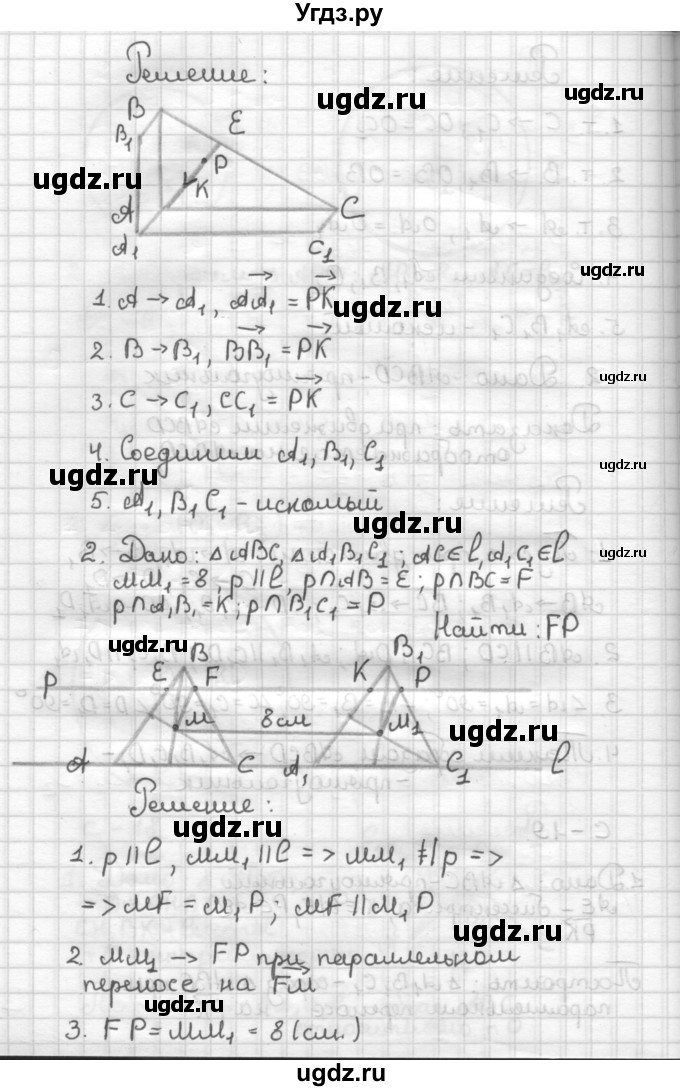 Угдз.ру
Решение:
B
E
B₁
P
K
A
C
A₁
C₁
ugdz.ru
ugdz.ru
ugdz.ru
ugdz.ru
1. A → A₁, AA₁ = PK
ugdz.ru
2. B → B₁, BB₁ = PK
ugdz.ru
3. C → C₁, CC₁ = PK
4. Соединим A₁, B₁, C₁
ugdz.ru
ugdz.ru
5. A₁, B₁ C₁ - искомый
ugdz.ru
2. Дано: △ABC, △A₁B₁C₁; AC∈l, A₁C₁∈l
ugdz.ru
MM₁ = 8, p∥l, p∩AB = E; p∩BC = F
ugdz.ru
p∩A₁B₁ = K; p∩B₁C₁ = P
Найти: FP
ugdz.ru
B
B₁
P
E
F
K
P
M
8см
M₁
ugdz.ru
A
C
A₁
C₁
l
Решение:
ugdz.ru
1. p∥l, MM₁∥l => MM₁ ∦ p =>
=> MF = M₁P; MF∥M₁P
ugdz.ru
2. MM₁ → FP при параллельном
переносе на FM
ugdz.ru
3. FP = MM₁ = 8 (см.)
ugdz.ru